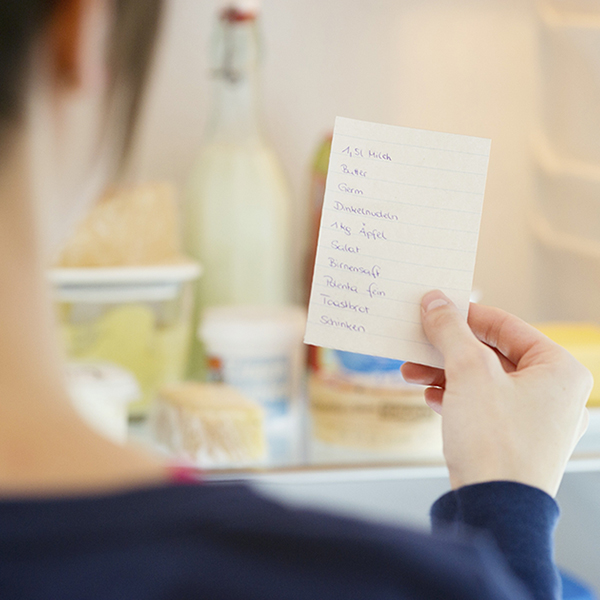 1,5l Milch
Butter
Germ
Dinkelnudeln
1 kg Äpfel
Salat
Birnensaft
Polenta fein
Toastbrot
Schinken